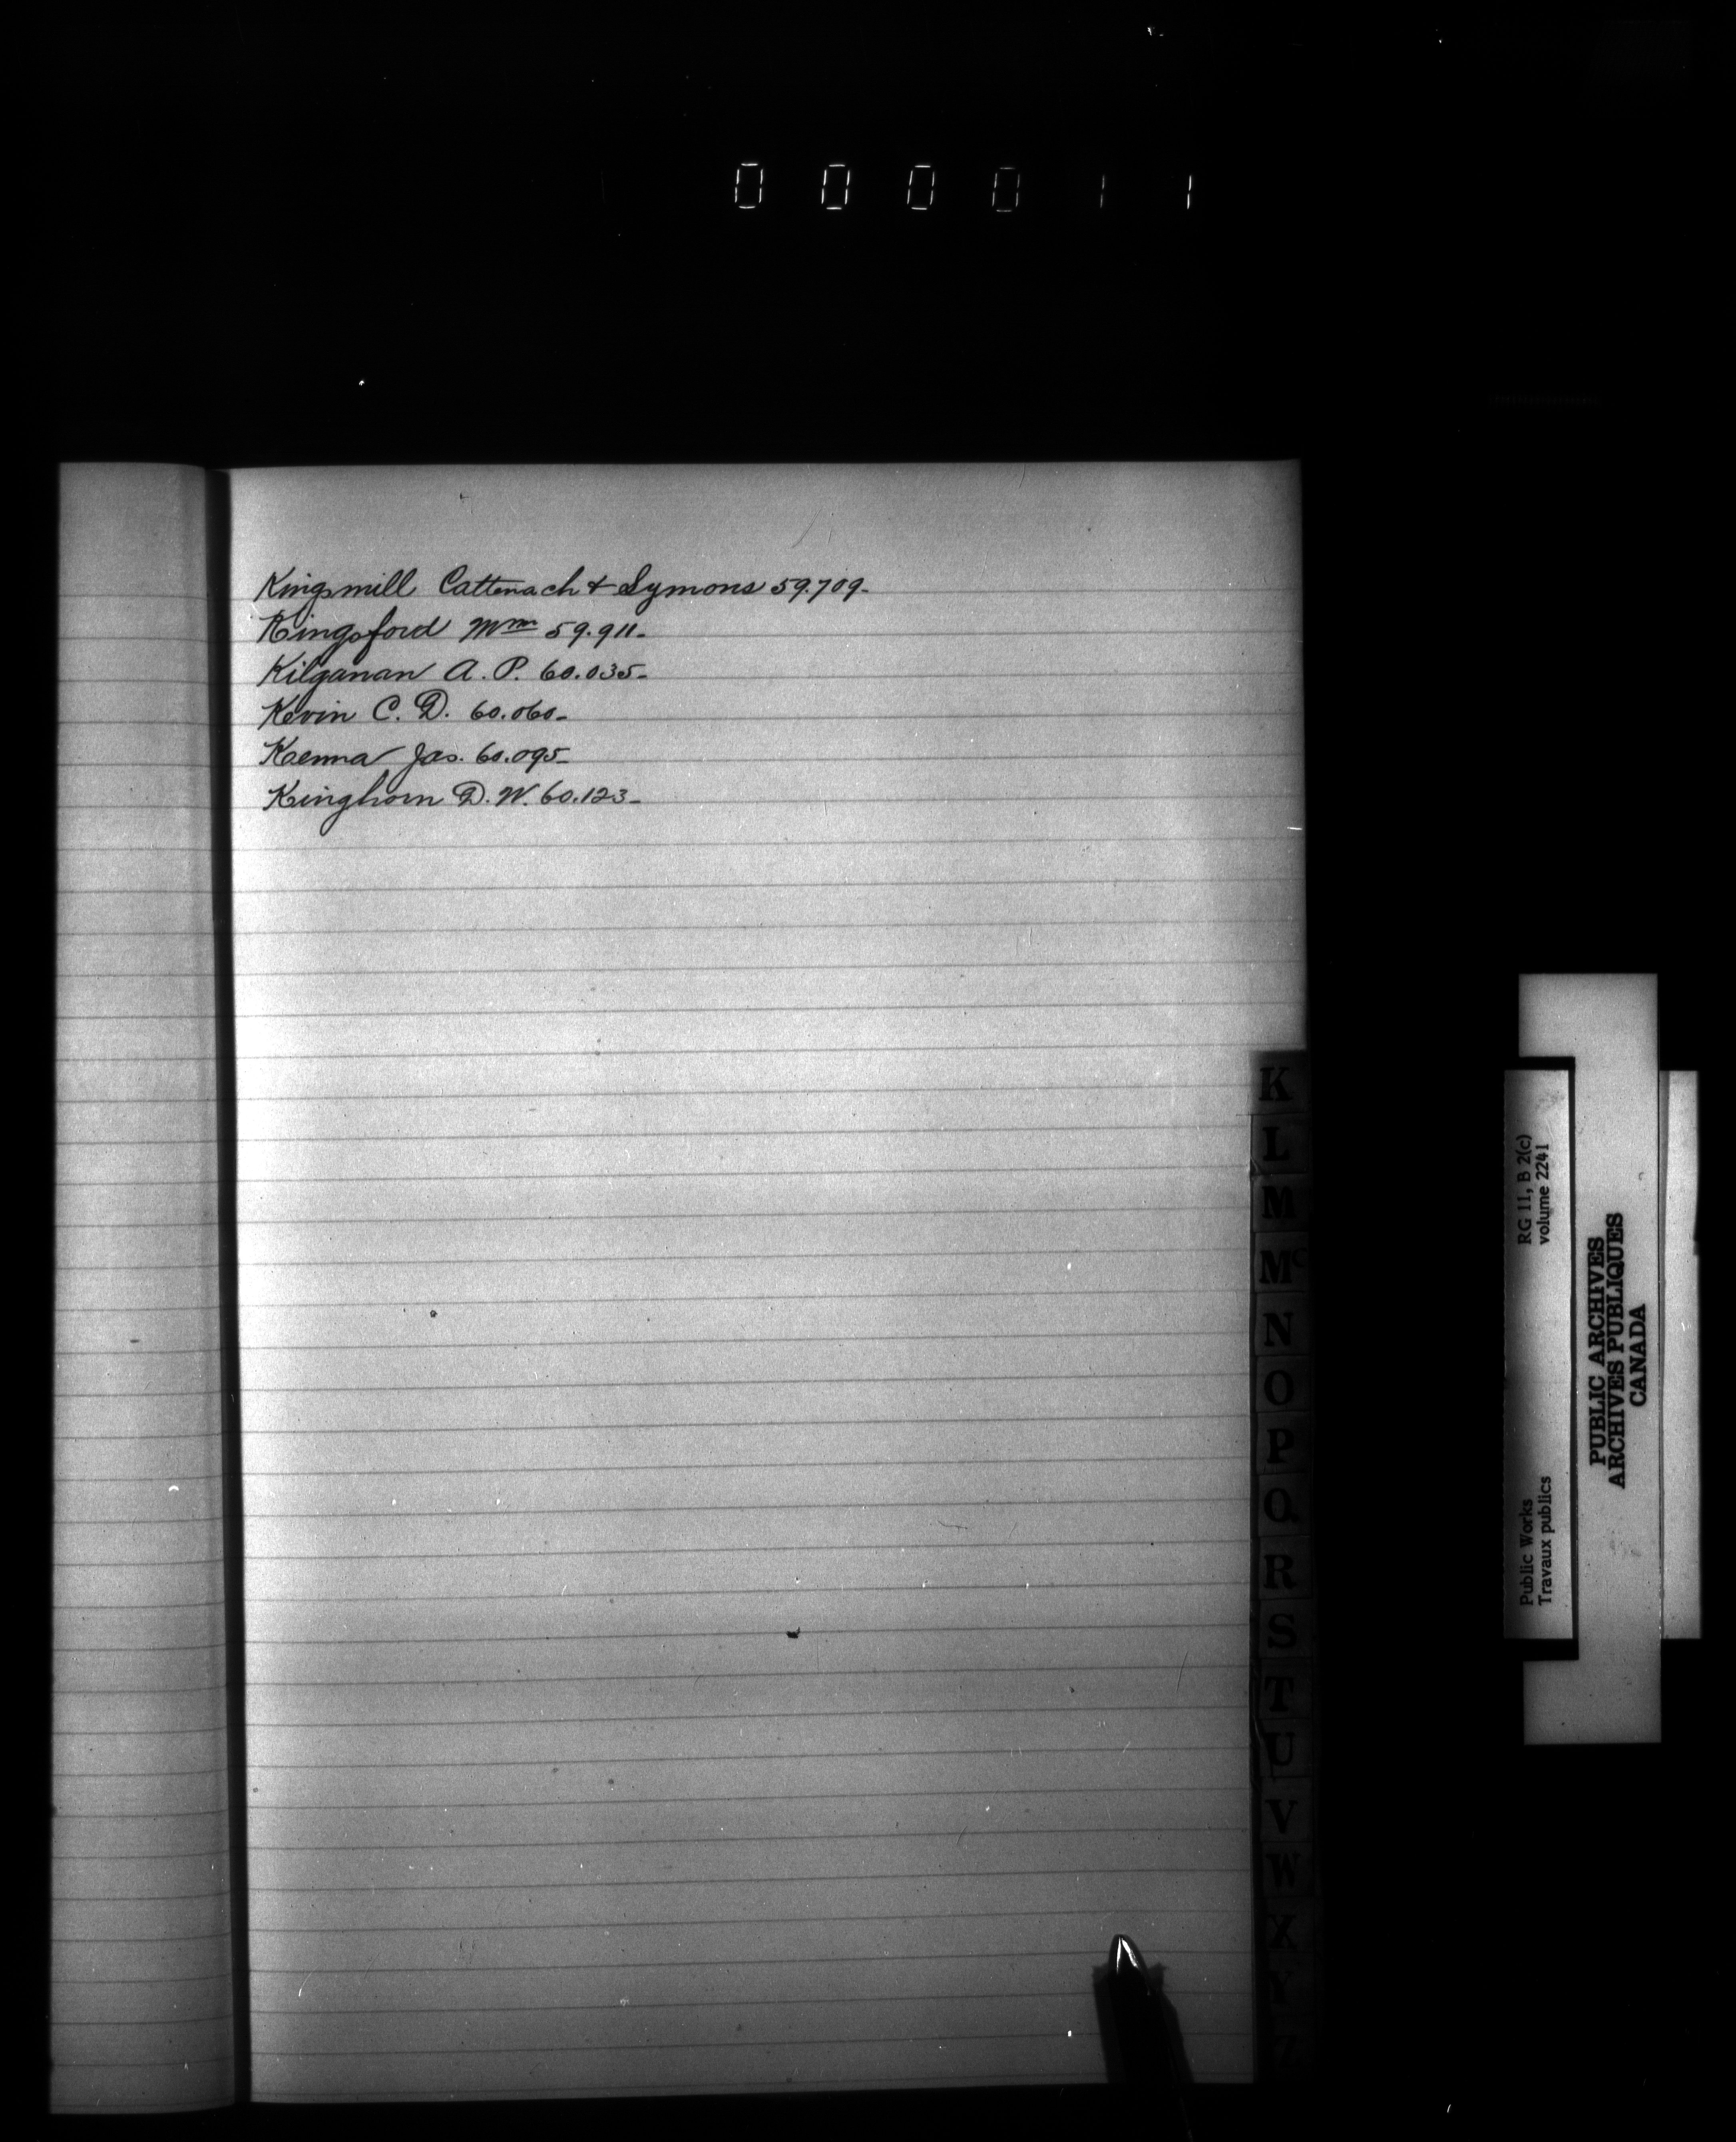 000011
Kingsmill Cattenach & Symons 59.709-
Kingsford Wm 59.911-
Kilganan A. P. 60.035-
Kevin C. D. 60.060-
Kenna Jas. 60.095-
Kinghorn D. W. 60.123-
K
L
M
Mc
N
O
P
Q
R
S
T
U
V
W
X
Y
Z
RG 11, B 2(c)
volume 2241
Public Works
Travaux publics
PUBLIC ARCHIVES
ARCHIVES PUBLIQUES
CANADA